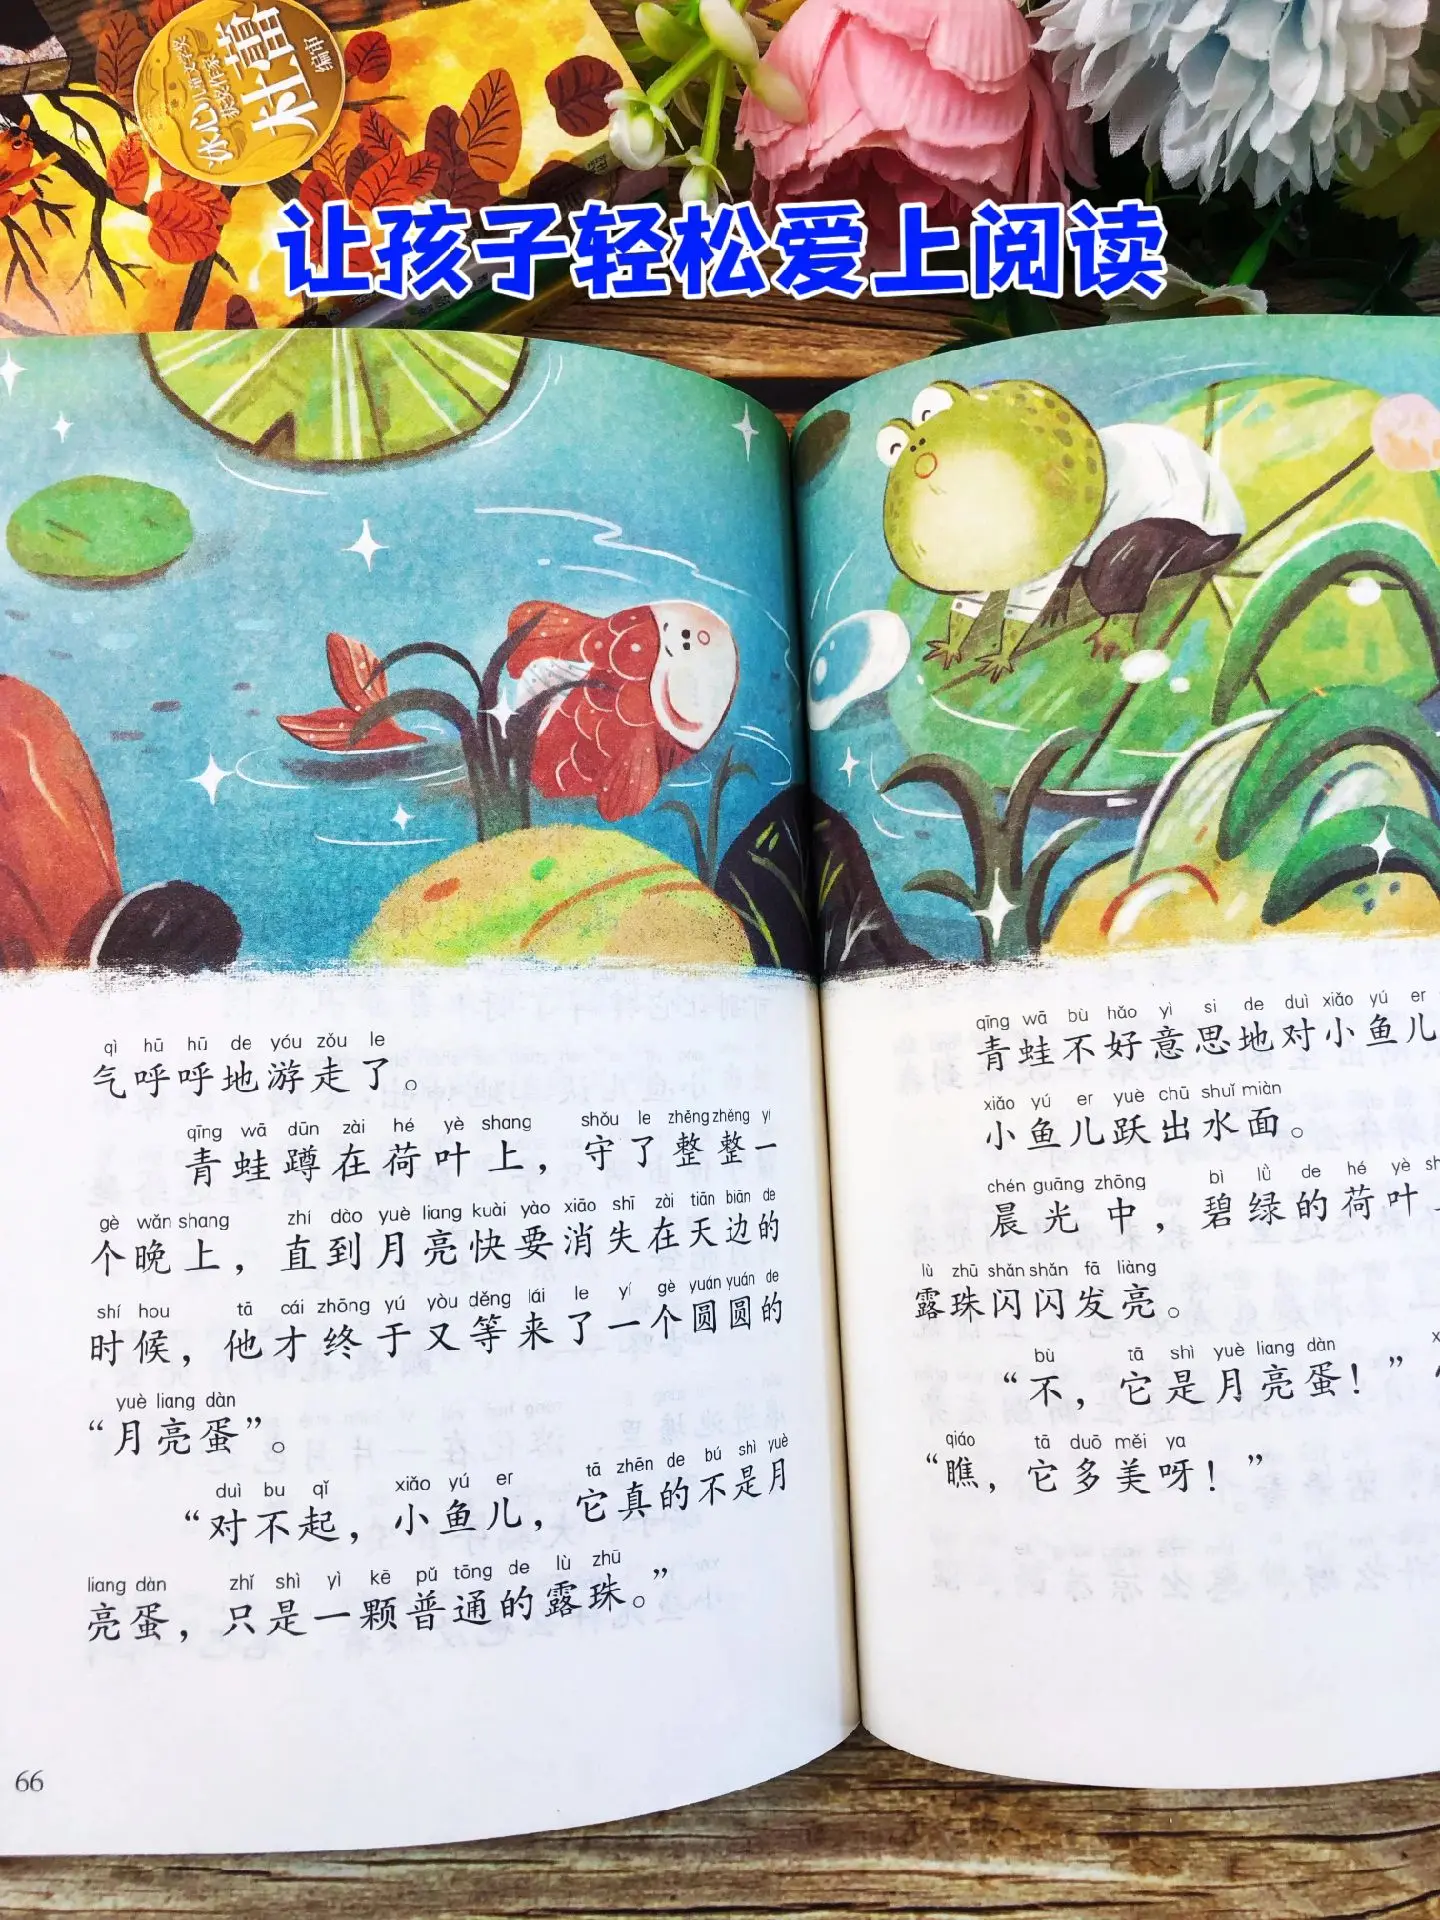 冰心儿童文学奖
获奖作家
杜蕾
编审
让孩子轻松爱上阅读
qì hū hū de yóu zǒu le
气呼呼地游走了。
qīng wā dūn zài hé yè shang shǒu le zhěng zhěng yí
青蛙蹲在荷叶上，守了整整一
gè wǎn shang zhí dào yuè liang kuài yào xiāo shī zài tiān biān de
个晚上，直到月亮快要消失在天边的
shí hou tā cái zhōng yú yòu děng lái le yí gè yuán yuán de
时候，他才终于又等来了一个圆圆的
yuè liang dàn
“月亮蛋”。
duì bu qǐ xiǎo yú er tā zhēn de bú shì yuè
“对不起，小鱼儿，它真的不是月
liang dàn zhǐ shì yì kē pǔ tōng de lù zhū
亮蛋，只是一颗普通的露珠。”
66
qīng wā bù hǎo yì si de duì xiǎo yú er
青蛙不好意思地对小鱼儿
xiǎo yú er yuè chū shuǐ miàn
小鱼儿跃出水面。
chén guāng zhōng bì lǜ de hé yè
晨光中，碧绿的荷叶
lù zhū shǎn shǎn fā liàng
露珠闪闪发亮。
bù tā shì yuè liang dàn
“不，它是月亮蛋！”
qiáo tā duō měi ya
“瞧，它多美呀！”